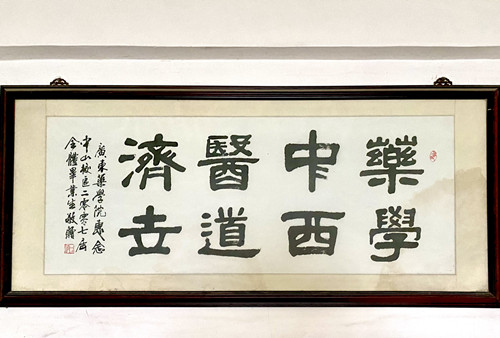 藥學
中西
醫道
濟世
廣東藥學院惠念
中山校区二零零七届
全體畢業生敬贈